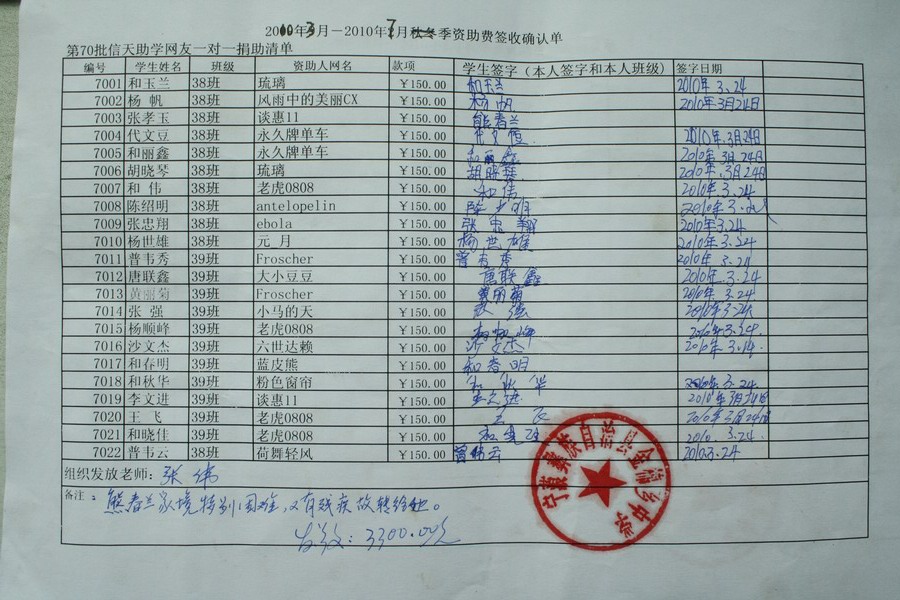 2010年3月－2010年7月秋冬季资助费签收确认单
第70批信天助学网友一对一捐助清单
编号 学生姓名 班级 资助人网名 款项 学生签字（本人签字和本人班级） 签字日期
7001 和玉兰 38班 琉璃 ￥150.00 和玉兰 2010年3.24
7002 杨 帆 38班 风雨中的美丽CX ￥150.00 杨帆 2010年3月24日
7003 张孝玉 38班 谈惠11 ￥150.00 熊春兰
7004 代文豆 38班 永久牌单车 ￥150.00 2010年.3月24日
7005 和丽鑫 38班 永久牌单车 ￥150.00 和丽鑫 2010年3月24日
7006 胡晓琴 38班 琉璃 ￥150.00 胡晓琴 2010年.3月24日
7007 和 伟 38班 老虎0808 ￥150.00 和伟 2010年3.24
7008 陈绍明 38班 antelopelin ￥150.00 2010年3.
7009 张忠翔 38班 ebola ￥150.00 张忠翔 2010年3.24
7010 杨世雄 38班 元 月 ￥150.00 杨世雄 2010年.3.24
7011 普韦秀 39班 Froscher ￥150.00 普韦秀 2010年.3.24
7012 唐联鑫 39班 大小豆豆 ￥150.00 唐联鑫 2010年.3.24
7013 黄丽菊 39班 Froscher ￥150.00 黄丽菊 2010年.3.24
7014 张 强 39班 小马的天 ￥150.00 张强 2010年3.24
7015 杨顺峰 39班 老虎0808 ￥150.00 2010年3.24
7016 沙文杰 39班 六世达赖 ￥150.00 沙文杰 2010年.3.
7017 和春明 39班 蓝皮熊 ￥150.00 和春明
7018 和秋华 39班 粉色窗帘 ￥150.00 和秋华 2010年.3.24
7019 李文进 39班 谈惠11 ￥150.00 李文进 2010年3月24日
7020 王 飞 39班 老虎0808 ￥150.00 王飞 2010年3月24日
7021 和晓佳 39班 老虎0808 ￥150.00 和晓佳 2010.3.24.
7022 普韦云 38班 荷舞轻风 ￥150.00 普韦云 2010.3.24
组织发放老师：张伟
宁蒗彝族自治县金沟乡中学
备注：熊春兰家境特别困难，又有残疾故转给她。
发放：3300.00元